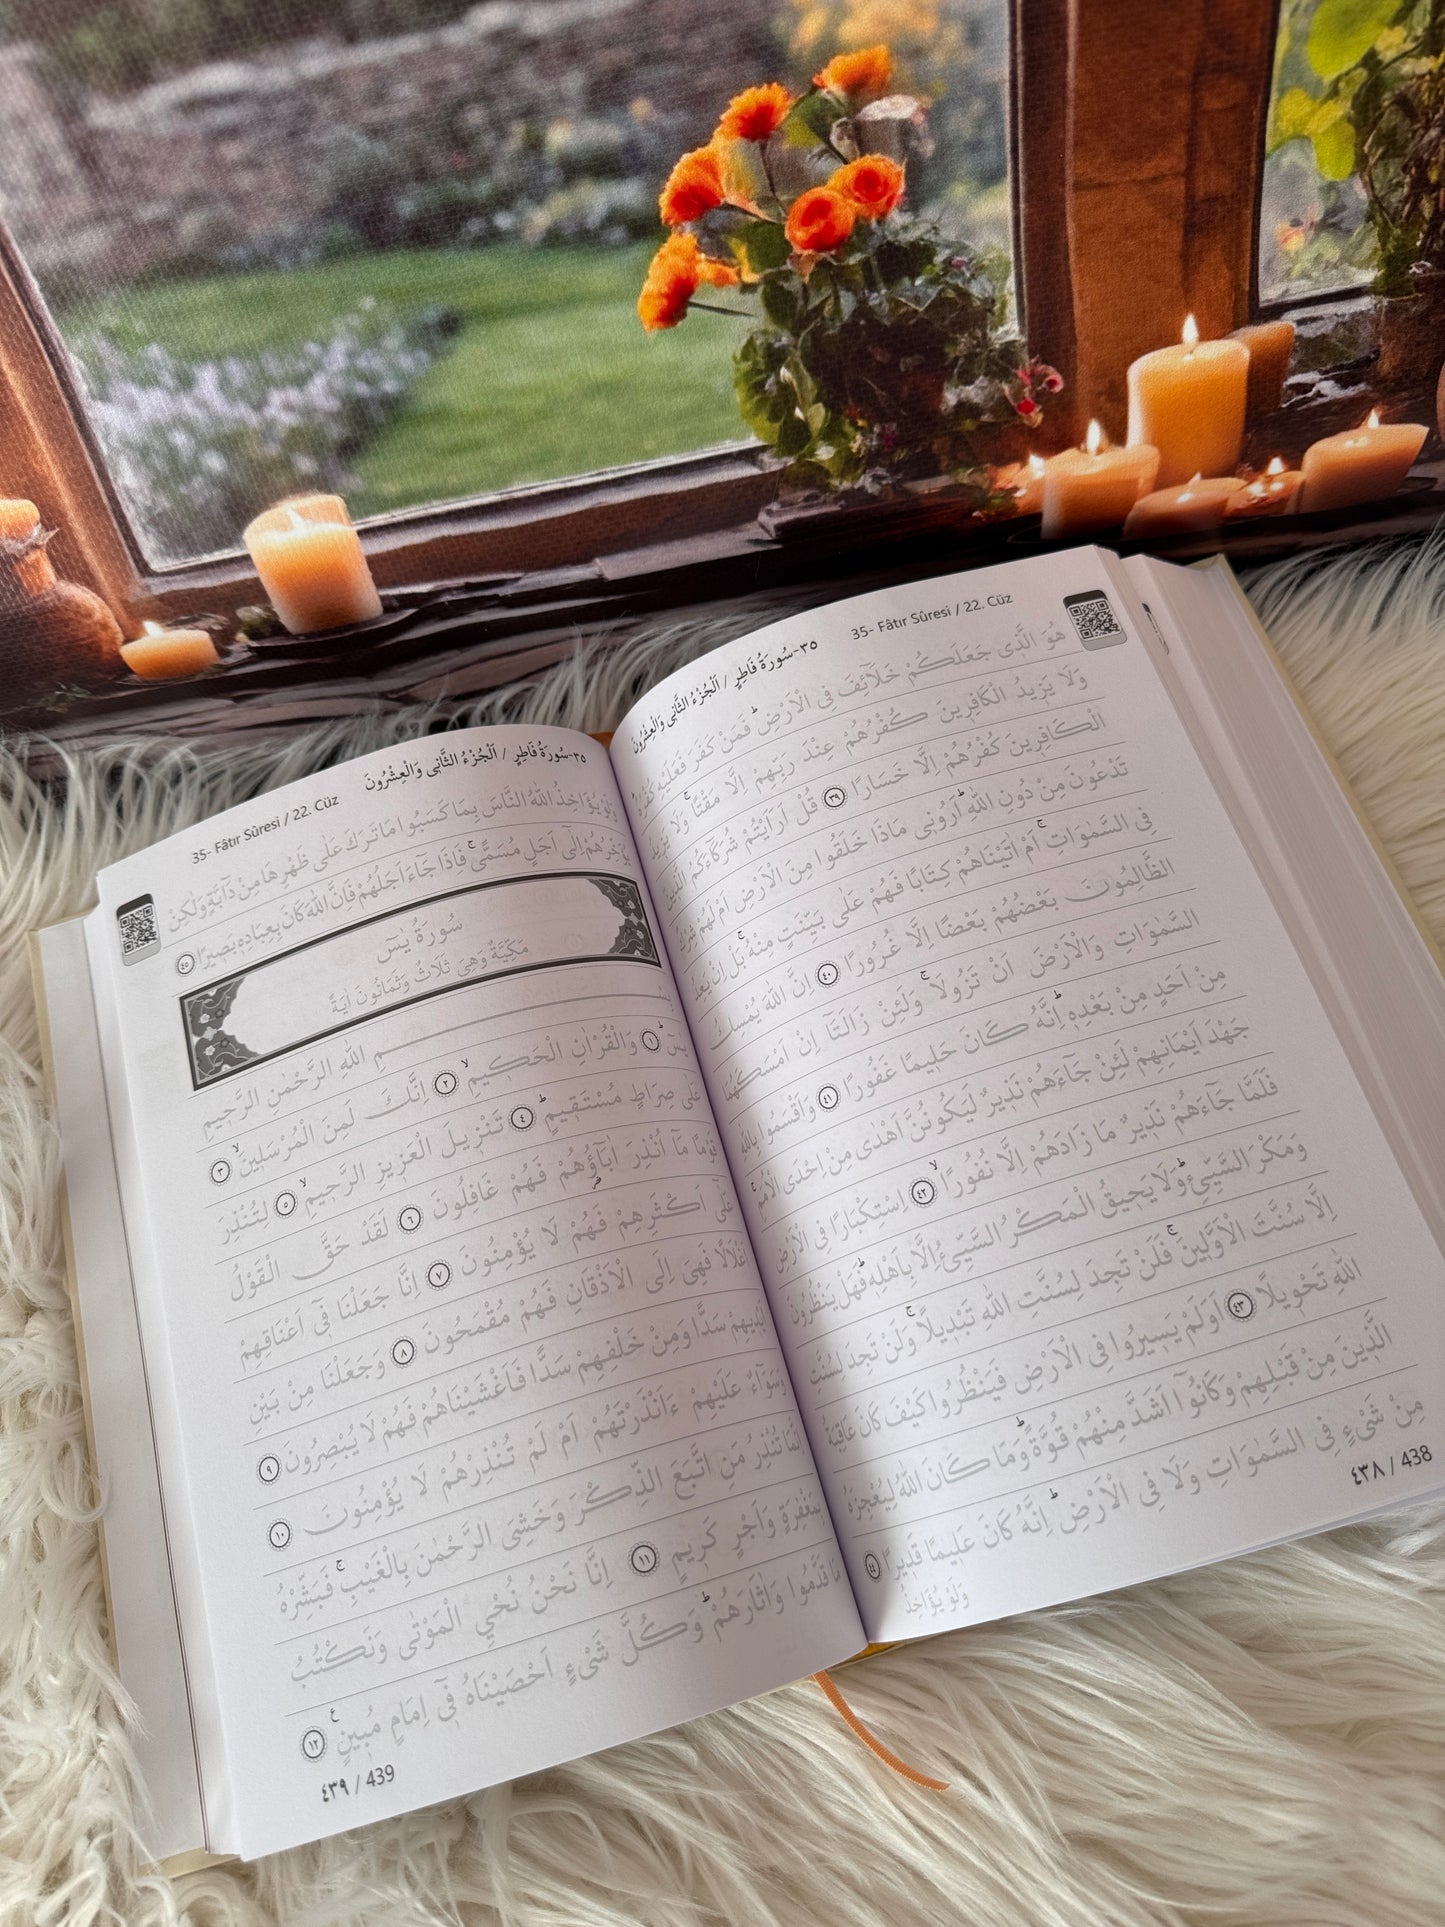 35- Fâtır Sûresi / 22. Cüz
٣٥-سُورَةُ فَاطِرٍ / اَلْجُزْءُ الثَّانِى وَالْعِشْرُونَ
هُوَ الَّذٖى جَعَلَكُمْ خَلَٓائِفَ فِى الْاَرْضِۜ فَمَنْ كَفَرَ فَعَلَيْهِ كُفْرُهُۜ
وَلَا يَزٖيدُ الْكَافِرٖينَ كُفْرُهُمْ عِنْدَ رَبِّهِمْ اِلَّا مَقْتًاۚ وَلَا يَزٖيدُ
الْكَافِرٖينَ كُفْرُهُمْ اِلَّا خَسَارًا ﴿٣٩﴾ قُلْ اَرَاَيْتُمْ شُرَكَٓاءَكُمُ الَّذٖينَ
تَدْعُونَ مِنْ دُونِ اللّٰهِۜ اَرُونٖى مَاذَا خَلَقُوا مِنَ الْاَرْضِ اَمْ لَهُمْ شِرْكٌ
فِى السَّمٰوَاتِۚ اَمْ اٰتَيْنَاهُمْ كِتَابًا فَهُمْ عَلٰى بَيِّنَتٍ مِنْهُۚ بَلْ اِنْ يَعِدُ
الظَّالِمُونَ بَعْضُهُمْ بَعْضًا اِلَّا غُرُورًا ﴿٤٠﴾ اِنَّ اللّٰهَ يُمْسِكُ
السَّمٰوَاتِ وَالْاَرْضَ اَنْ تَزُولَاۚ وَلَئِنْ زَالَتَٓا اِنْ اَمْسَكَهُمَا
مِنْ اَحَدٍ مِنْ بَعْدِهٖۜ اِنَّهُ كَانَ حَلٖيمًا غَفُورًا ﴿٤١﴾ وَاَقْسَمُوا بِاللّٰهِ
جَهْدَ اَيْمَانِهِمْ لَئِنْ جَٓاءَهُمْ نَذٖيرٌ لَيَكُونُنَّ اَهْدٰى مِنْ اِحْدَى الْاُمَمِۚ
فَلَمَّا جَٓاءَهُمْ نَذٖيرٌ مَا زَادَهُمْ اِلَّا نُفُورًاۙ ﴿٤٢﴾ اِسْتِكْبَارًا فِى الْاَرْضِ
وَمَكْرَ السَّيِّئِۜ وَلَا يَحٖيقُ الْمَكْرُ السَّيِّئُ اِلَّا بِاَهْلِهٖۜ فَهَلْ يَنْظُرُونَ
اِلَّا سُنَّتَ الْاَوَّلٖينَۚ فَلَنْ تَجِدَ لِسُنَّتِ اللّٰهِ تَبْدٖيلًاۚ وَلَنْ تَجِدَ لِسُنَّتِ
اللّٰهِ تَحْوٖيلًا ﴿٤٣﴾ اَوَلَمْ يَسٖيرُوا فِى الْاَرْضِ فَيَنْظُرُوا كَيْفَ كَانَ عَاقِبَةُ
الَّذٖينَ مِنْ قَبْلِهِمْ وَكَانُٓوا اَشَدَّ مِنْهُمْ قُوَّةًۜ وَمَا كَانَ اللّٰهُ لِيُعْجِزَهُ
مِنْ شَیْءٍ فِى السَّمٰوَاتِ وَلَا فِى الْاَرْضِۜ اِنَّهُ كَانَ عَلٖيمًا قَدٖيرًا ﴿٤٤﴾
وَلَوْ يُؤَاخِذُ
٤٣٨ / 438
٣٥-سُورَةُ فَاطِرٍ / اَلْجُزْءُ الثَّانِى وَالْعِشْرُونَ
35- Fâtır Sûresi / 22. Cüz
وَلَوْ يُؤَاخِذُ اللّٰهُ النَّاسَ بِمَا كَسَبُوا مَا تَرَكَ عَلٰى ظَهْرِهَا مِنْ دَٓابَّةٍ وَلٰكِنْ
يُؤَخِّرُهُمْ اِلٰٓى اَجَلٍ مُسَمًّىۚ فَاِذَا جَٓاءَ اَجَلُهُمْ فَاِنَّ اللّٰهَ كَانَ بِعِبَادِهٖ بَصٖيرًا ﴿٤٥﴾
سُورَةُ يٰسٓ
مَكِّيَّةٌ وَهِىَ ثَلَاثٌ وَثَمَانُونَ اٰيَةً
بِسْمِ اللّٰهِ الرَّحْمٰنِ الرَّحٖيمِ
يٰسٓۜ ﴿١﴾ وَالْقُرْاٰنِ الْحَكٖيمِۙ ﴿٢﴾ اِنَّكَ لَمِنَ الْمُرْسَلٖينَۙ ﴿٣﴾
عَلٰى صِرَاطٍ مُسْتَقٖيمٍۜ ﴿٤﴾ تَنْزٖيلَ الْعَزٖيزِ الرَّحٖيمِۙ ﴿٥﴾ لِتُنْذِرَ
قَوْمًا مَٓا اُنْذِرَ اٰبَٓاؤُهُمْ فَهُمْ غَافِلُونَ ﴿٦﴾ لَقَدْ حَقَّ الْقَوْلُ
عَلٰٓى اَكْثَرِهِمْ فَهُمْ لَا يُؤْمِنُونَ ﴿٧﴾ اِنَّا جَعَلْنَا فٖٓى اَعْنَاقِهِمْ
اَغْلَالًا فَهِىَ اِلَى الْاَذْقَانِ فَهُمْ مُقْمَحُونَ ﴿٨﴾ وَجَعَلْنَا مِنْ بَيْنِ
اَيْدٖيهِمْ سَدًّا وَمِنْ خَلْفِهِمْ سَدًّا فَاَغْشَيْنَاهُمْ فَهُمْ لَا يُبْصِرُونَ ﴿٩﴾
وَسَوَٓاءٌ عَلَيْهِمْ ءَاَنْذَرْتَهُمْ اَمْ لَمْ تُنْذِرْهُمْ لَا يُؤْمِنُونَ ﴿١٠﴾
اِنَّمَا تُنْذِرُ مَنِ اتَّبَعَ الذِّكْرَ وَخَشِىَ الرَّحْمٰنَ بِالْغَيْبِۚ فَبَشِّرْهُ
بِمَغْفِرَةٍ وَاَجْرٍ كَرٖيمٍ ﴿١١﴾ اِنَّا نَحْنُ نُحْىِ الْمَوْتٰى وَنَكْتُبُ
مَا قَدَّمُوا وَاٰثَارَهُمْۜ وَكُلَّ شَیْءٍ اَحْصَيْنَاهُ فٖٓى اِمَامٍ مُبٖينٍ ﴿١٢﴾
٤٣٩ / 439